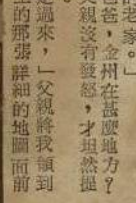 的老家。」
爸爸，金州在甚麼地方？
父親沒有發怒，才坦然提
走過來，」父親將我領到
上的那張詳細的地圖面前